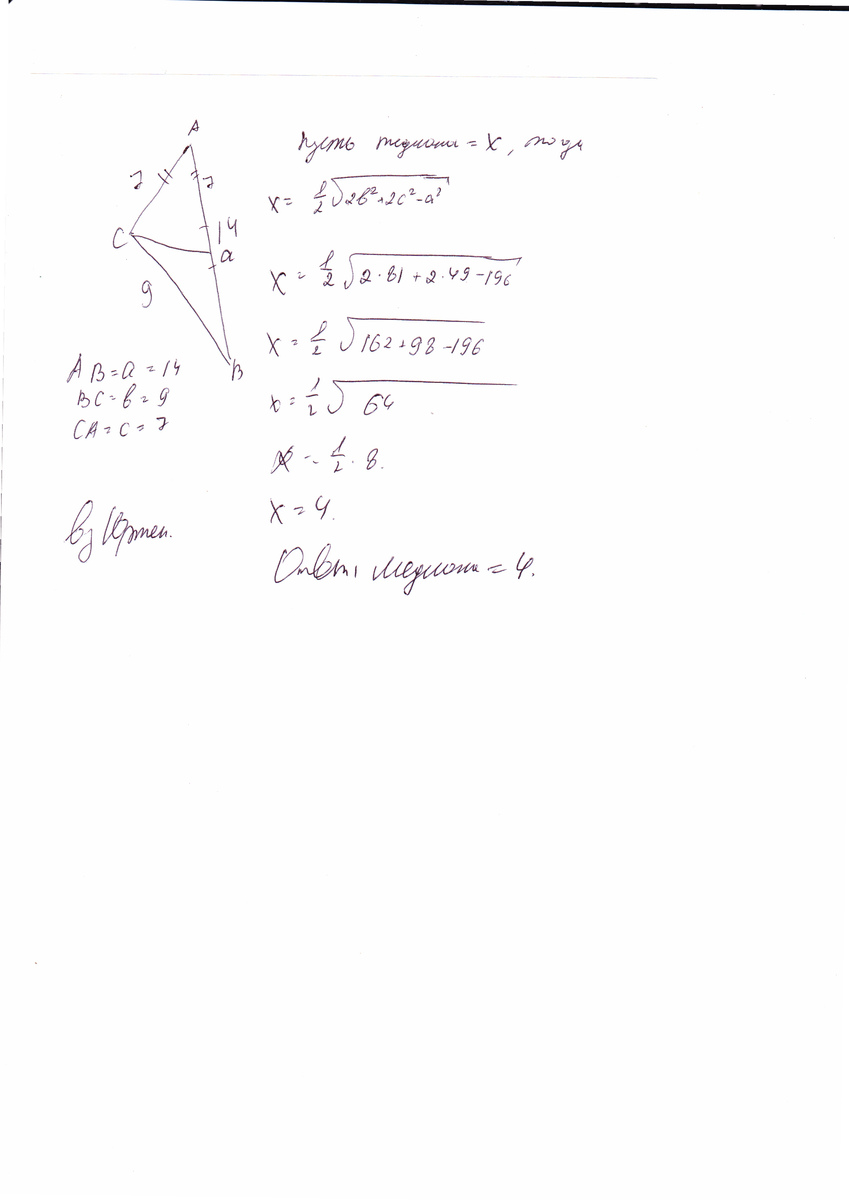 A
7
7
14
C
a
9
B
AB = a = 14
BC = b = 9
CA = c = 7
Пусть медиана = x, тогда
x = 1/2 √2b²+2c²-a²
x = 1/2 √2·81+2·49-196
x = 1/2 √162+98-196
x = 1/2 √64
x = 1/2 · 8.
x = 4.
Ответ: медиана = 4.